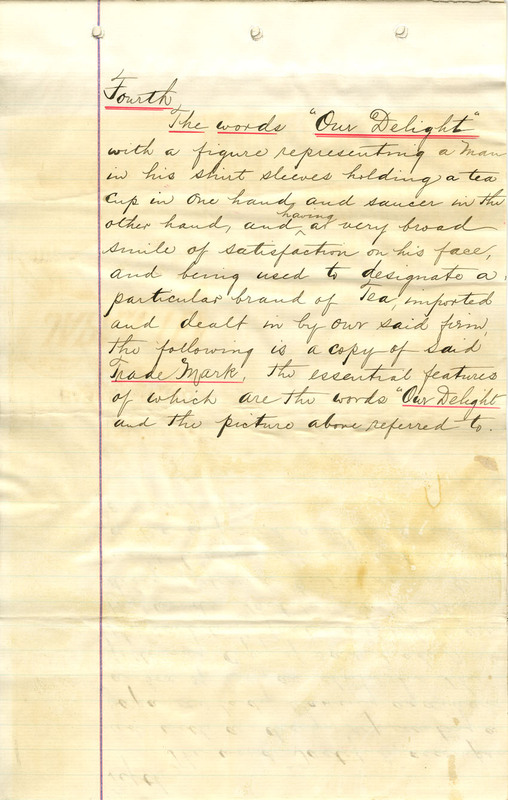 Fourth
The words "Our Delight"
with a figure representing a man
in his shirt sleeves holding a tea
cup in one hand, and saucer in the
other hand, and having a very broad
smile of satisfaction on his face,
and being used to designate a
particular brand of Tea, imported
and dealt in by our said firm,
the following is a copy of said
Trade Mark, the essential features
of which are the words "Our Delight
and the picture above referred to.